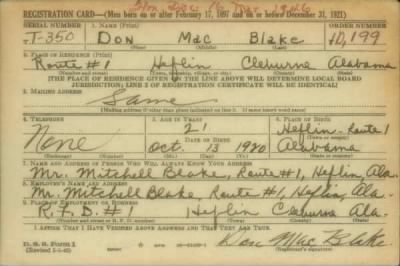 REGISTRATION CARD—(Men born on or after February 17, 1897 and on or before December 31, 1921)
SERIAL NUMBER 1. NAME (Print) ORDER NUMBER
T-350 Don Mac Blake 10,199
(First) (Middle) (Last)
2. PLACE OF RESIDENCE (Print)
Route #1 Heflin Cleburne Alabama
(Number and street) (Town, township, village, or city) (County) (State)
[THE PLACE OF RESIDENCE GIVEN ON THE LINE ABOVE WILL DETERMINE LOCAL BOARD
JURISDICTION; LINE 2 OF REGISTRATION CERTIFICATE WILL BE IDENTICAL]
3. MAILING ADDRESS
Same
[Mailing address if other than place indicated on line 2. If same insert word same]
4. TELEPHONE 5. AGE IN YEARS 6. PLACE OF BIRTH
21 Heflin-Route 1
None DATE OF BIRTH (Town or county)
Oct. 13 1920 Alabama
(Mo.) (Day) (Yr.) (State or country)
7. NAME AND ADDRESS OF PERSON WHO WILL ALWAYS KNOW YOUR ADDRESS
Mr. Mitchell Blake, Route #1, Heflin, Ala.
8. EMPLOYER'S NAME AND ADDRESS
Mr. Mitchell Blake, Route #1, Heflin, Ala.
9. PLACE OF EMPLOYMENT OR BUSINESS
R.F.D. #1 Heflin Cleburne Ala.
(Number and street or R. F. D. number) (Town) (County) (State)
I AFFIRM THAT I HAVE VERIFIED ABOVE ANSWERS AND THAT THEY ARE TRUE.
D. S. S. Form 1
Don Mac Blake